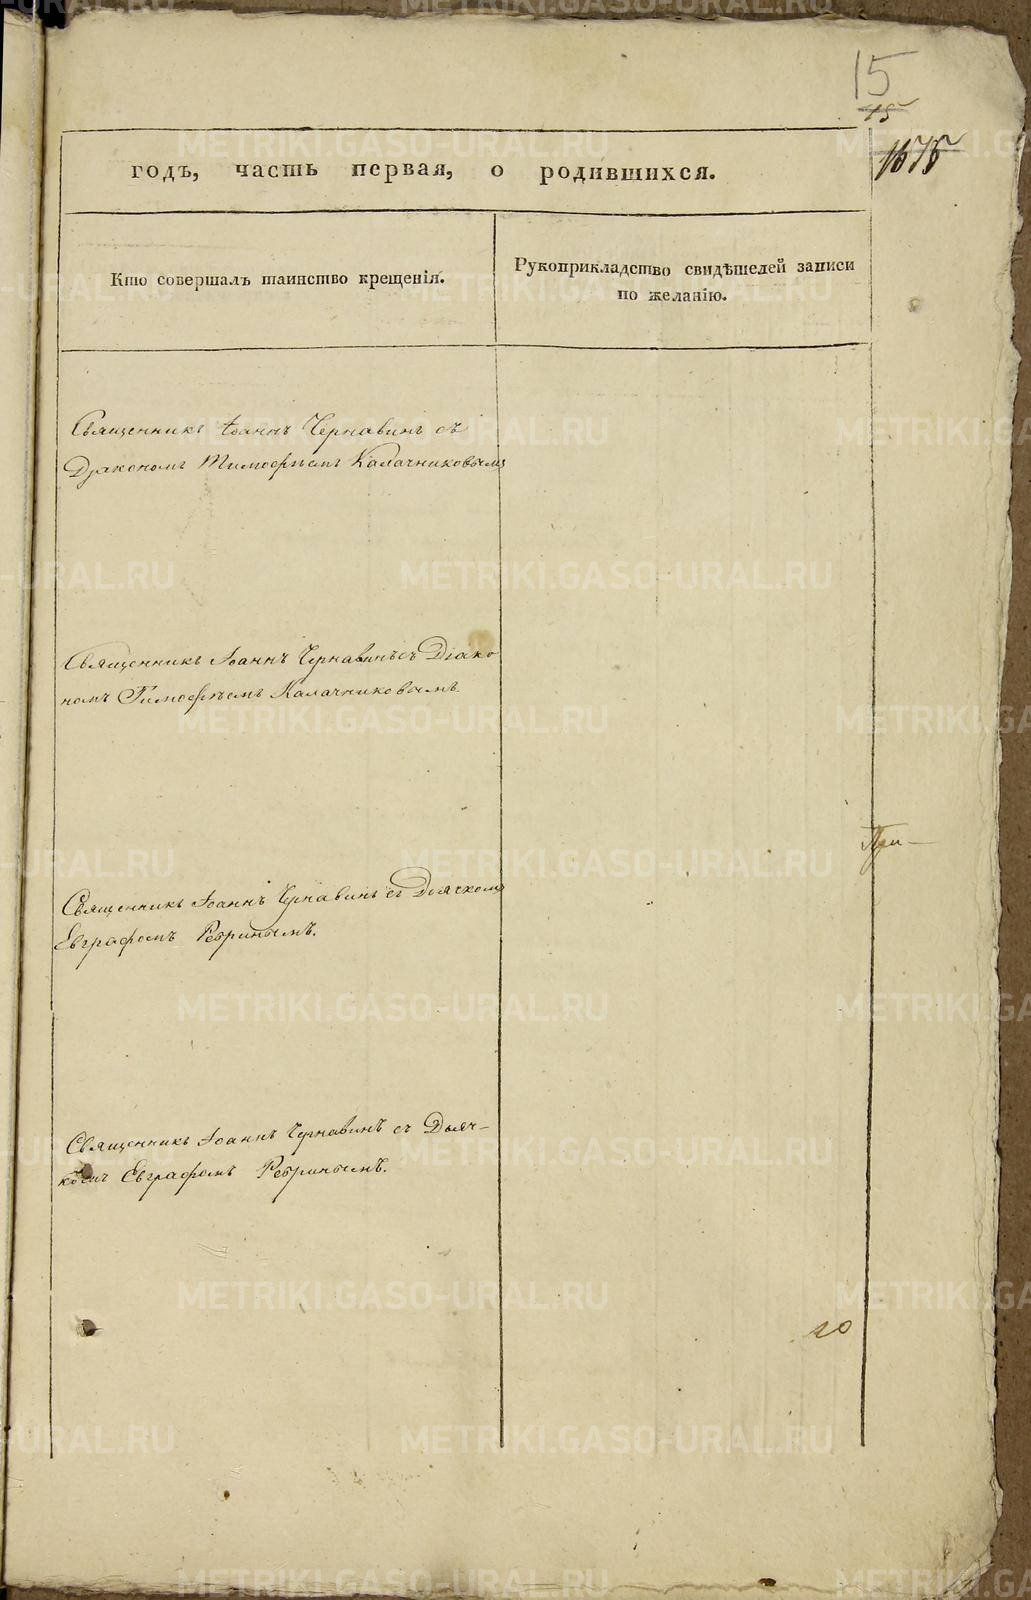 15
15
1675
годъ, часть первая, о родившихся.
Кто совершалъ таинство крещенія.
Рукоприкладство свидѣтелей записи
по желанію.
Священникъ Іоаннъ Чернавинъ съ
Діакономъ Тимофѣемъ Калачниковымъ
Священникъ Іоаннъ Чернавинъ съ Діако
номъ Тимофѣемъ Калачниковымъ.
При—
Священникъ Іоаннъ Чернавинъ съ Дьячкомъ
Евграфомъ Ребринымъ.
Священникъ Іоаннъ Чернавинъ съ Дьяч-
комъ Евграфомъ Ребринымъ.
20
METRIKI.GASO-URAL.RU